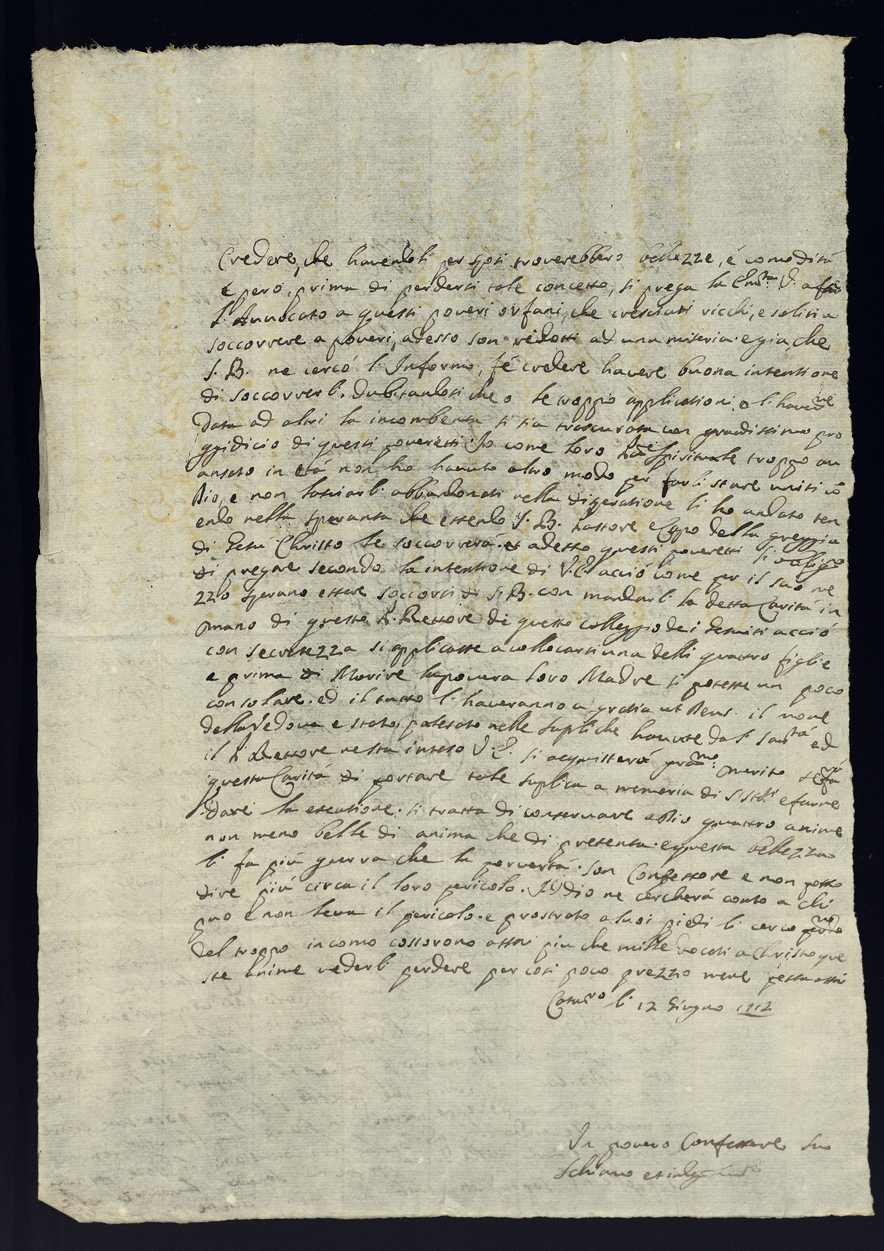 Credere, che havendoli per sposi troverebbero bellezze, é comoditá
e peró, prima di perdersi tale concetto, si prega la V.
l'Avvocato a questi poveri orfani, che cresciuti ricchi, e soliti a
soccorrere a poveri, adesso son redotti ad una miseria. e giá, che
S. B. ne cercó l'Informo, fé credere havere buona intentione
di soccorrerli. Dubitandosi che o le troppo applicationi, o l'haver ne
data ad altri la incombenza si sia trascurata con grandissimo pre
giudicio di questi poveretti. Io come loro Spirituale troppo av
anzato in etá non ho havuto altro modo per farli stare uniti có
Dio, e non lasciarli abbandonati nella disperatione li ho andato ten
endo nella speranza che essendo S. B. Pastore e Capo della greggia
di Gesú Christo le soccorrerá. et adesso questi poveretti
di pregare secondo la intentione di V. E. acció come per il suo me
zzo sperano essere soccorsi di S. B. con mandarli la detta Caritá in
mano di questo P. Rettore de questo colleggio dei Gesuiti acció
con secretezza si applicasse a collocarsi una delli quattro figlie
e prima di Morire la povera loro Madre si potesse un poco
consolare. ed il tutto l'haveranno a gratia ut Deus. il nome
della Vedova e stato palesato nelle supliche havute da S. Santá ed
il P. Rettore resta inteso V. E. si acquisterá merito se fá
questa Caritá di portare tale suplica a memoria di S. Stá. e farne
dare la esecutione. si tratta di conservare a Dio quattro anime
non meno belle di anima che di presenza. e questa bellezza
li fa piú guerra che la povertá. son Confessore e non posso
dire piú circa il loro pericolo. Iddio ne cercherá conto a chi
puo e non leva il pericolo. e prostrato a suoi piedi li cerco
del troppo incomo costorono assai piu che mille docati a Christo que
ste anime vederli perdere per cosi poco prezzo mene
li 12 Giugno 1712
Un povero Confessore suo
Schiavo